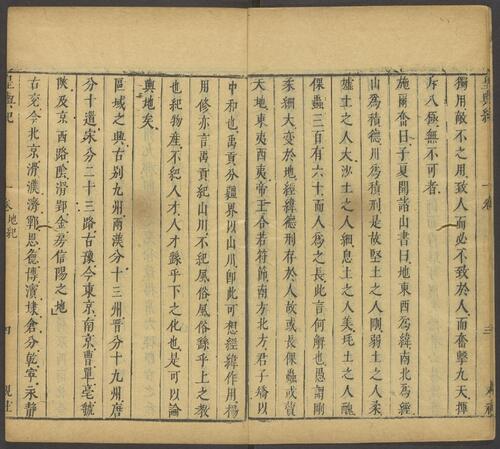 獨用敵不之用致人而必不致於人而奮擊九天揮
斥八極無不可者
施爾奮曰子夏開諸山書曰地東西為緯南北為經
山為積德川為積刑是故堅土之人剛弱土之人柔
墟土之人大沙土之人細息土之人美耗土之人醜
倮蟲三百有六十而人為之長此言何解也愚謂剛
柔細大變於地經緯德刑存於人故或長倮蟲或贊
天地東夷西夷帝王合若符節南方北方君子矯以
中和也禹貢分疆界以山川即此可想經緯作用楊
用修亦言禹貢紀山川不紀風俗風俗繇乎上之教
也紀物產不紀人才人才繇乎下之化也是可以論
輿地矣
區域之興古別九州兩漢分十三州晉分十九州唐
分十道宋分二十三路古豫今東京南京曹單亳虢
陝及京西路陰滑鄧金房信陽之地
古兖今北京滑濮濟鄆恩德博濱棣倉分乾寧永靜
卷 地紀
四